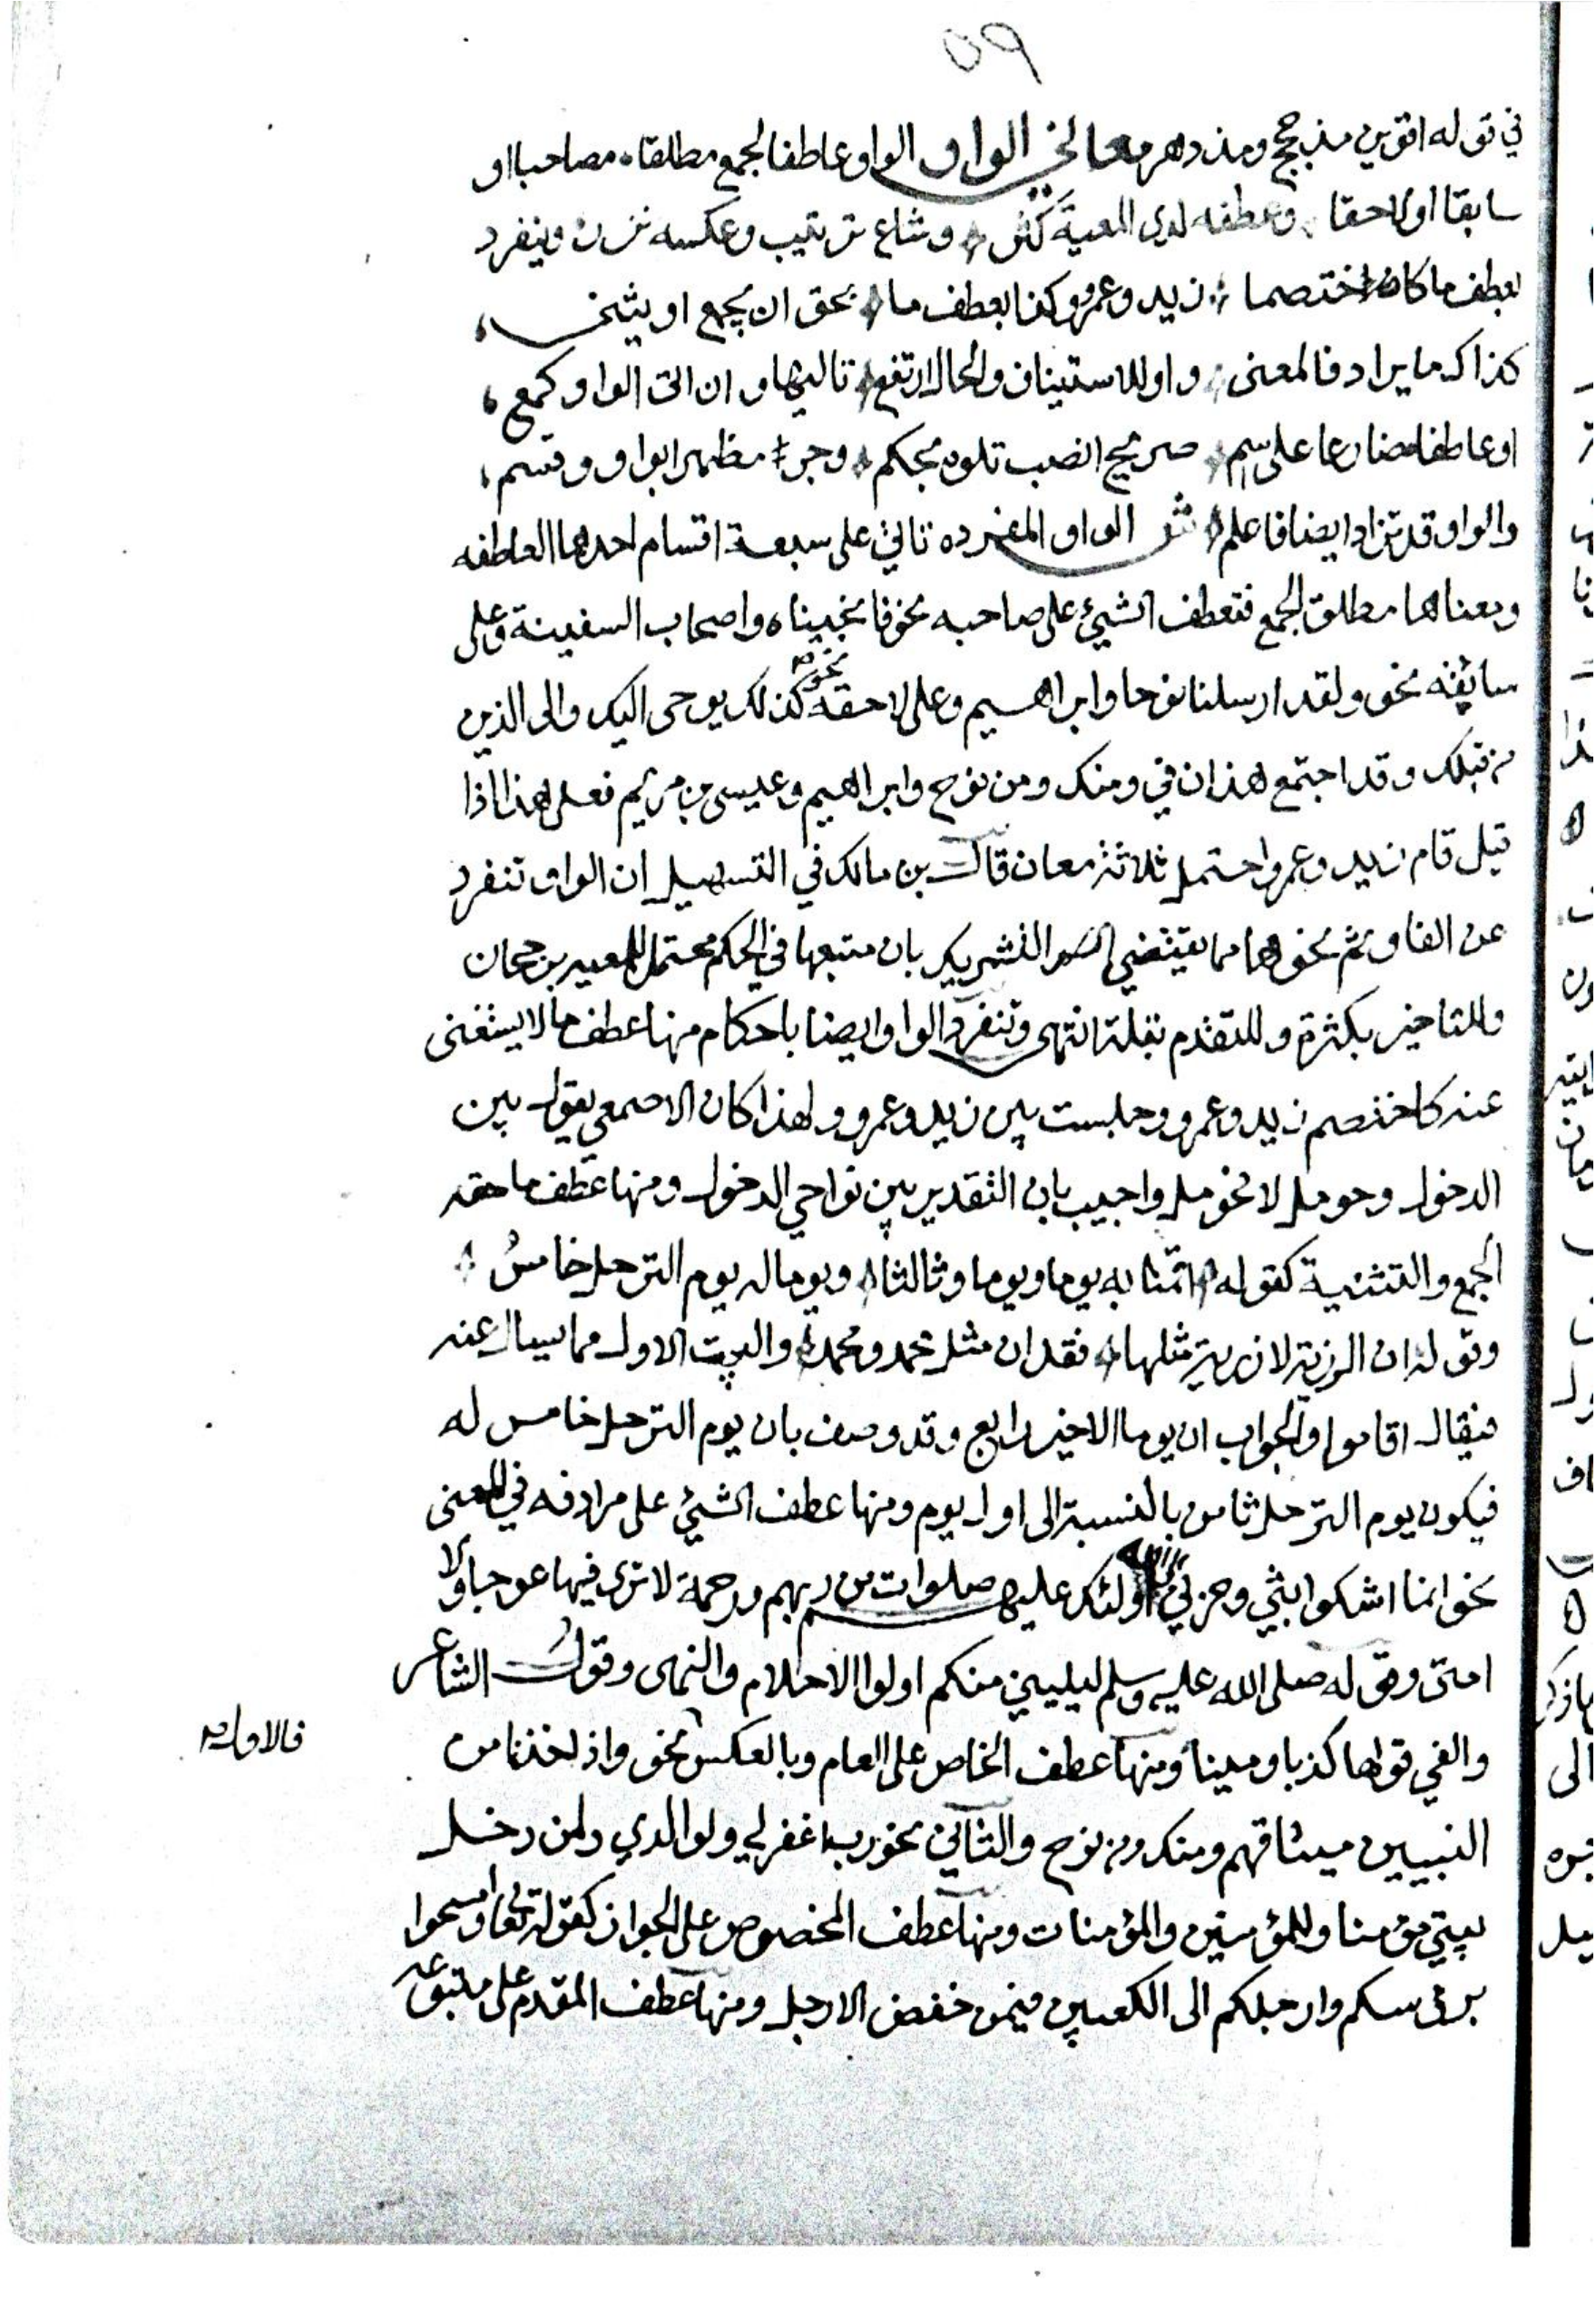 ٩٥
في قوله اقوين مذ حجج ومذ دهر معاني الواو الواو عاطفا لجمع مطلقا مصاحبا او
سابقا او لاحقا وعطفه لدى المعية كثر وشاع ترتيب وعكسه نزر وينفرد
بعطف ما كاختصما زيد وعمرو وكذا بعطف ما بحق ان يجمع او يثنى
كذاك ما يرادف المعنى واو للاستيناف والحال ارتفع تاليها وان اتى الواو كمع
او عاطفا مضارعا على اسم صريح انصب تلوه بحكم وجر مظهرا بواو وقسم
والواو قد تزاد ايضا فاعلم ش الواو المفرده تاتي على سبعة اقسام احدها العاطفه
ومعناها مطلق الجمع فتعطف الشيئ على صاحبه نحو فانجيناه واصحاب السفينة وعلى
سابقه نحو ولقد ارسلنا نوحا وابراهيم وعلى لاحقه نحو كذلك يوحى اليك والى الذين
من قبلك وقد اجتمع هذان في ومنك ومن نوح وابراهيم وعيسى بن مريم فعلى هذا اذا
قيل قام زيد وعمرو احتمل ثلاثة معان قال بن مالك في التسهيل ان الواو تنفرد
عن الفا وثم نحوهما مما يقتضي التشريك بان متبعها في الحكم محتمل للمعية برجحان
وللتاخير بكثرة وللتقدم بقلة انتهى وتنفرد الواو ايضا باحكام منها عطف ما لا يستغنى
عنه كاختصم زيد وعمرو وجلست بين زيد وعمرو ولهذا كان الاصمعي يقول بين
الدخول وحومل لا فحومل واجيب بان التقدير بين نواحي الدخول ومنها عطف ما حقه
الجمع والتثنية كقوله اقمنا به يوما ويوما وثالثا ويوما له يوم الترحل خامس
وقوله ان الرزية لا رزية مثلها فقدان مثل محمد ومحمد والبيت الاول مما يسال عنه
فيقال اقاموا والجواب ان يوما الاخير رابع وقد وصف بان يوم الترحل خامس له
فيكون يوم الترحل ثامن بالنسبة الى اول يوم ومنها عطف الشيئ على مرادفه في المعنى
نحو انما اشكوا بثي وحزني اولئك عليهم صلوات من ربهم ورحمة لا ترى فيها عوجا ولا
امتى وقوله صلى الله عليه وسلم ليليني منكم اولوا الاحلام والنهى وقول الشاعر
والفي قولها كذبا ومينا ومنها عطف الخاص على العام وبالعكس نحو واذ اخذنا من
فالاول
النبيين ميثاقهم ومنك ومن نوح والثاني نحو رب اغفر لي ولوالدي ولمن دخل
بيتي مؤمنا وللمؤمنين والمؤمنات ومنها عطف المخصوص على الجوار كقوله تعالى وامسحوا
برؤسكم وارجلكم الى الكعبين فيمن خفض الارجل ومنها عطف المقدم على متبوعه